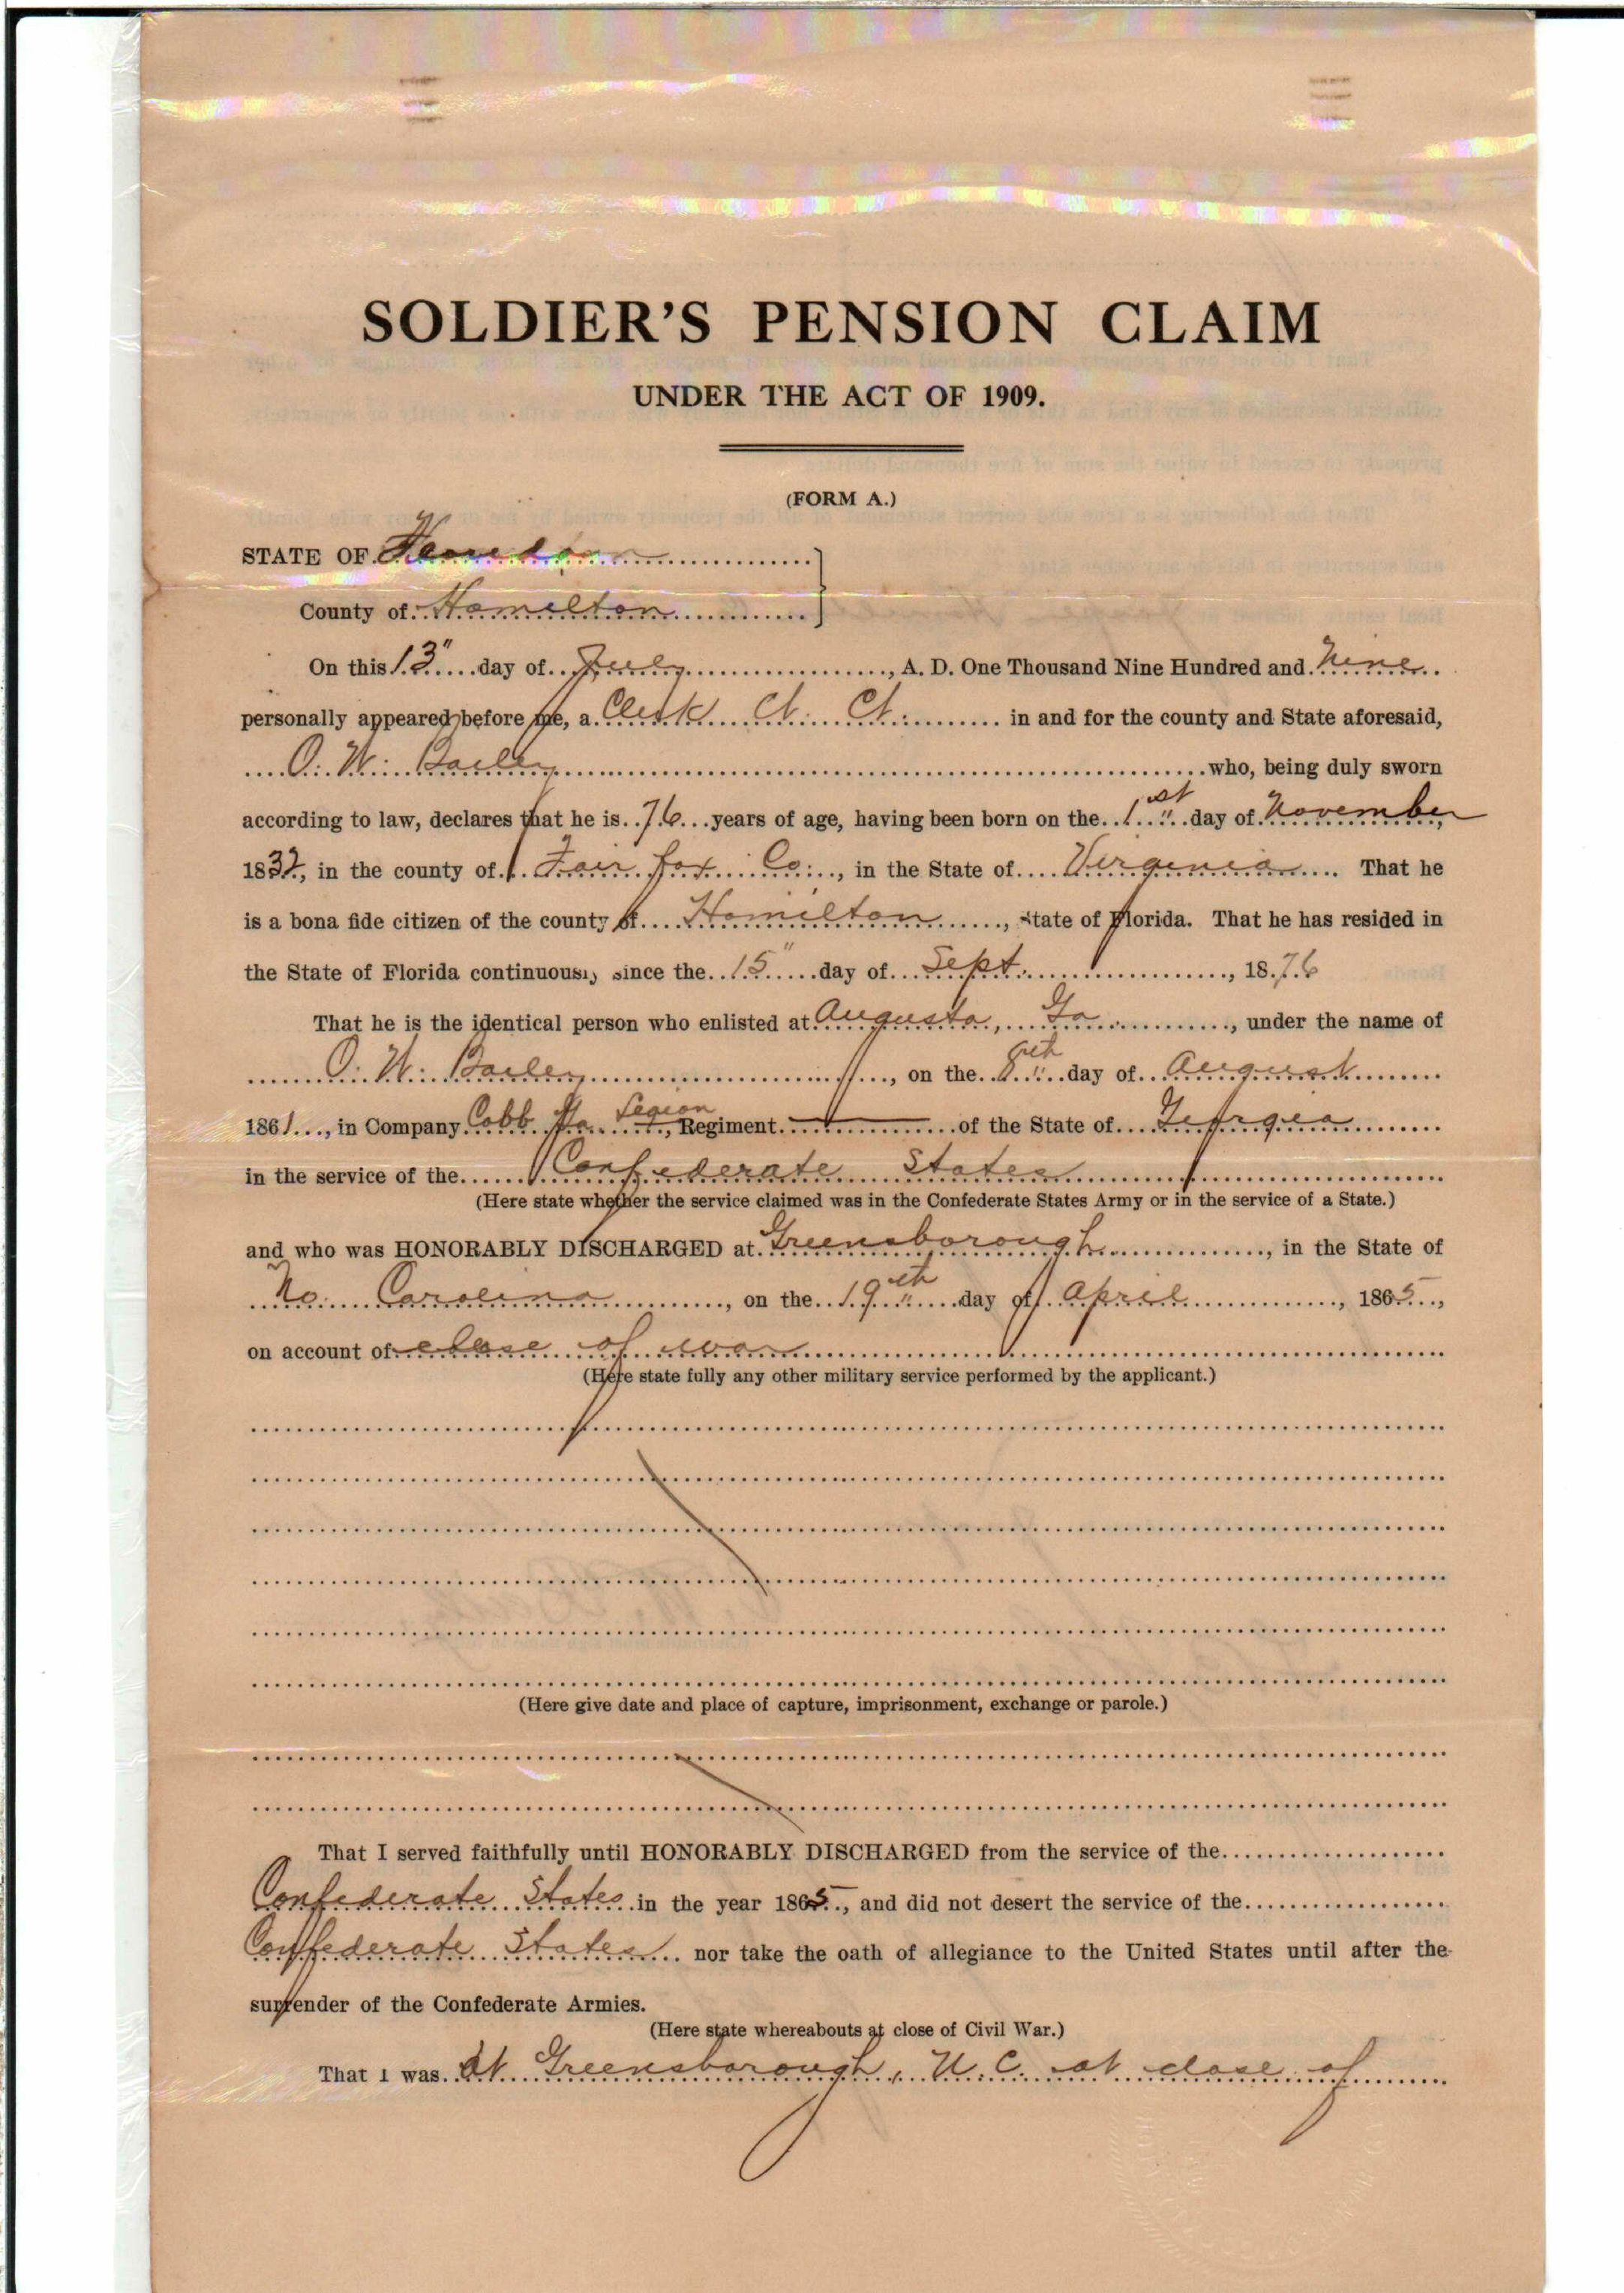 SOLDIER'S PENSION CLAIM
UNDER THE ACT OF 1909.
(FORM A.)
STATE OF Florida
County of Hamilton
On this 13" day of July, A. D. One Thousand Nine Hundred and Nine
personally appeared before me, a Clerk Ct. Ct. in and for the county and State aforesaid,
O. W. Bailey who, being duly sworn
according to law, declares that he is 76 years of age, having been born on the 1st day of November,
1832, in the county of Fairfax Co., in the State of Virginia. That he
is a bona fide citizen of the county of Hamilton, State of Florida. That he has resided in
the State of Florida continuously since the 15" day of Sept., 1876
That he is the identical person who enlisted at Augusta, Ga, under the name of
O. W. Bailey, on the 8th day of August
1861, in Company Cobb Ga. Legion, Regiment of the State of Georgia
in the service of the Confederate States
(Here state whether the service claimed was in the Confederate States Army or in the service of a State.)
and who was HONORABLY DISCHARGED at Greensborough, in the State of
No. Carolina, on the 19th day of April, 1865,
on account of close of war
(Here state fully any other military service performed by the applicant.)
(Here give date and place of capture, imprisonment, exchange or parole.)
That I served faithfully until HONORABLY DISCHARGED from the service of the
Confederate States in the year 1865, and did not desert the service of the
Confederate States nor take the oath of allegiance to the United States until after the
surrender of the Confederate Armies.
(Here state whereabouts at close of Civil War.)
That I was at Greensborough, N. C. at close of